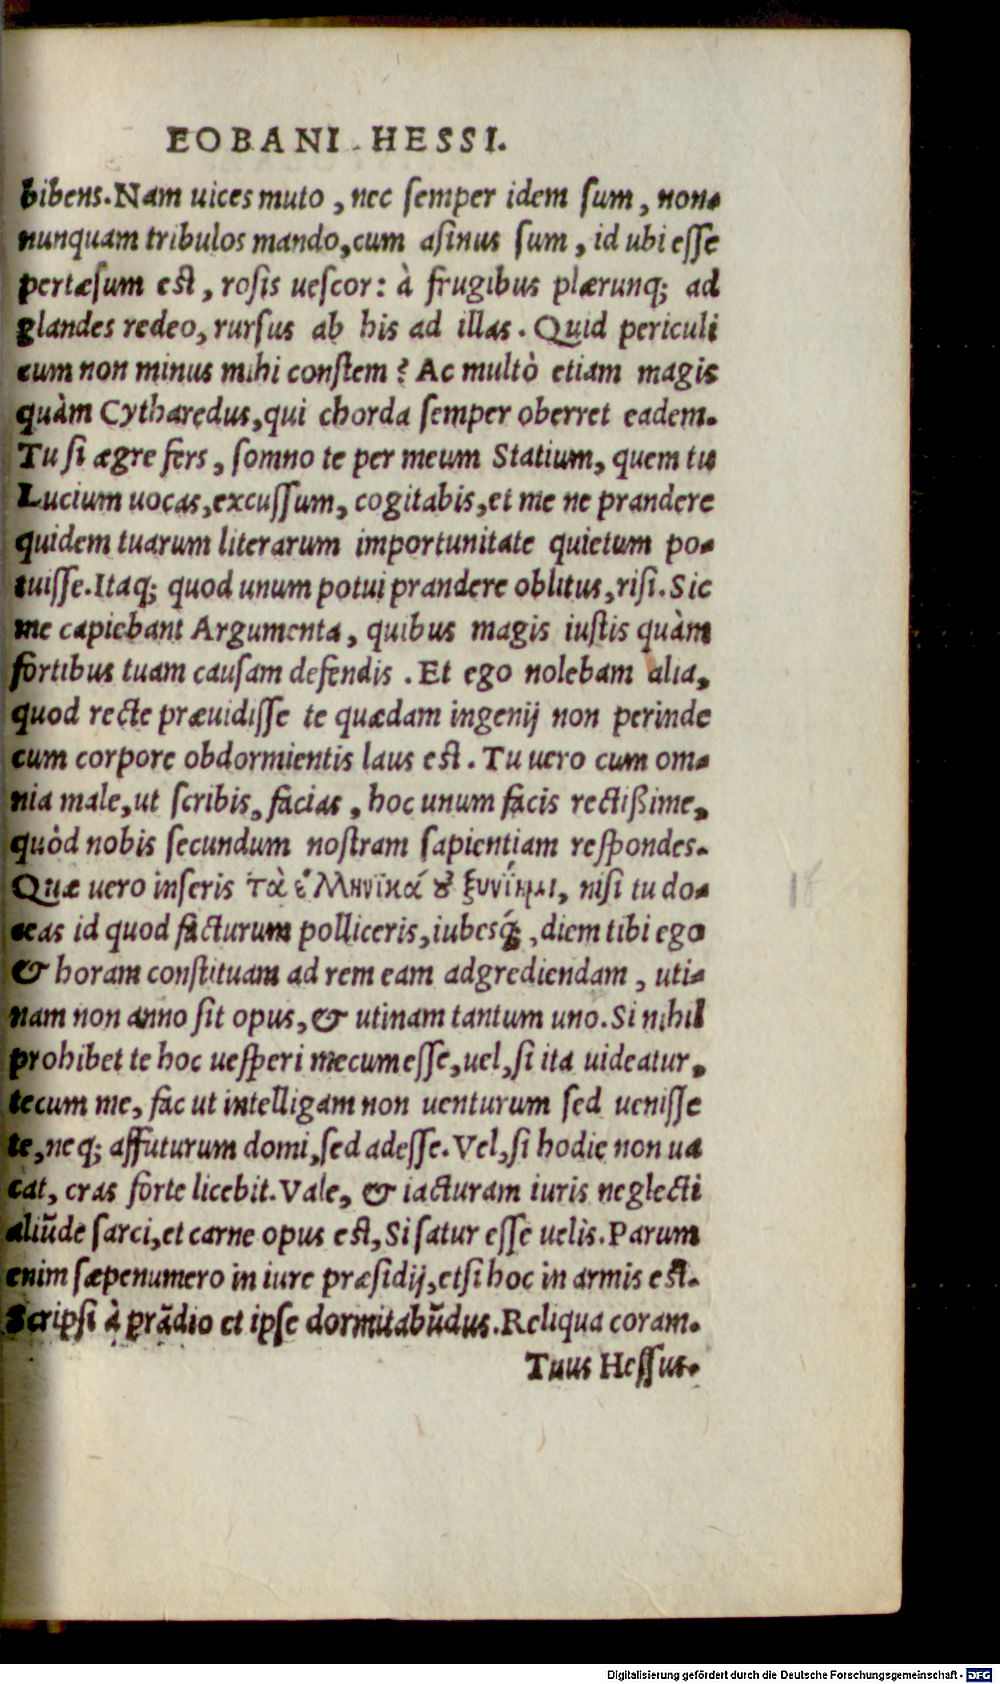 EOBANI HESSI.
bibens. Nam uices muto, nec ſemper idem ſum, non-
nunquam tribulos mando, cum aſinus ſum, id ubi eſſe
pertæſum eſt, roſis ueſcor: à frugibus plærunq; ad
glandes redeo, rurſus ab his ad illas. Quid periculi
cum non minus mihi conſtem? Ac multò etiam magis
quàm Cytharędus, qui chorda ſemper oberret eadem.
Tu ſi ægre fers, ſomno te per meum Statium, quem tu
Lucium uocas, excuſſum, cogitabis, et me ne prandere
quidem tuarum literarum importunitate quietum po-
tuiſſe. Itaq; quod unum potui prandere oblitus, riſi. Sic
me capiebant Argumenta, quibus magis iuſtis quàm
fortibus tuam cauſam defendis. Et ego nolebam alia,
quod recte præuidiſſe te quædam ingenij non perinde
cum corpore obdormientis laus eſt. Tu uero cum om-
nia male, ut ſcribis, facias, hoc unum facis rectißime,
quòd nobis ſecundum noſtram ſapientiam reſpondes.
Quæ uero inſeris τὰ ἑλληνικά ȣ ξυνίημι, niſi tu do-
ceas id quod facturum polliceris, iubesq́;, diem tibi ego
& horam conſtituam ad rem eam adgrediendam, uti-
nam non anno ſit opus, & utinam tantum uno. Si nihil
prohibet te hoc ueſperi mecum eſſe, uel, ſi ita uideatur,
tecum me, fac ut intelligam non uenturum ſed ueniſſe
te, neq; affuturum domi, ſed adeſſe. Vel, ſi hodie non ua
cat, cras forte licebit. Vale, & iacturam iuris neglecti
aliũde ſarci, et carne opus eſt, Si ſatur eſſe uelis. Parum
enim ſæpenumero in iure præſidij, etſi hoc in armis eſt.
Scripſi à prãdio et ipſe dormitabũdus. Reliqua coram.
Tuus Heſſus.
18
Digitalisierung gefördert durch die Deutsche Forschungsgemeinschaft - DFG